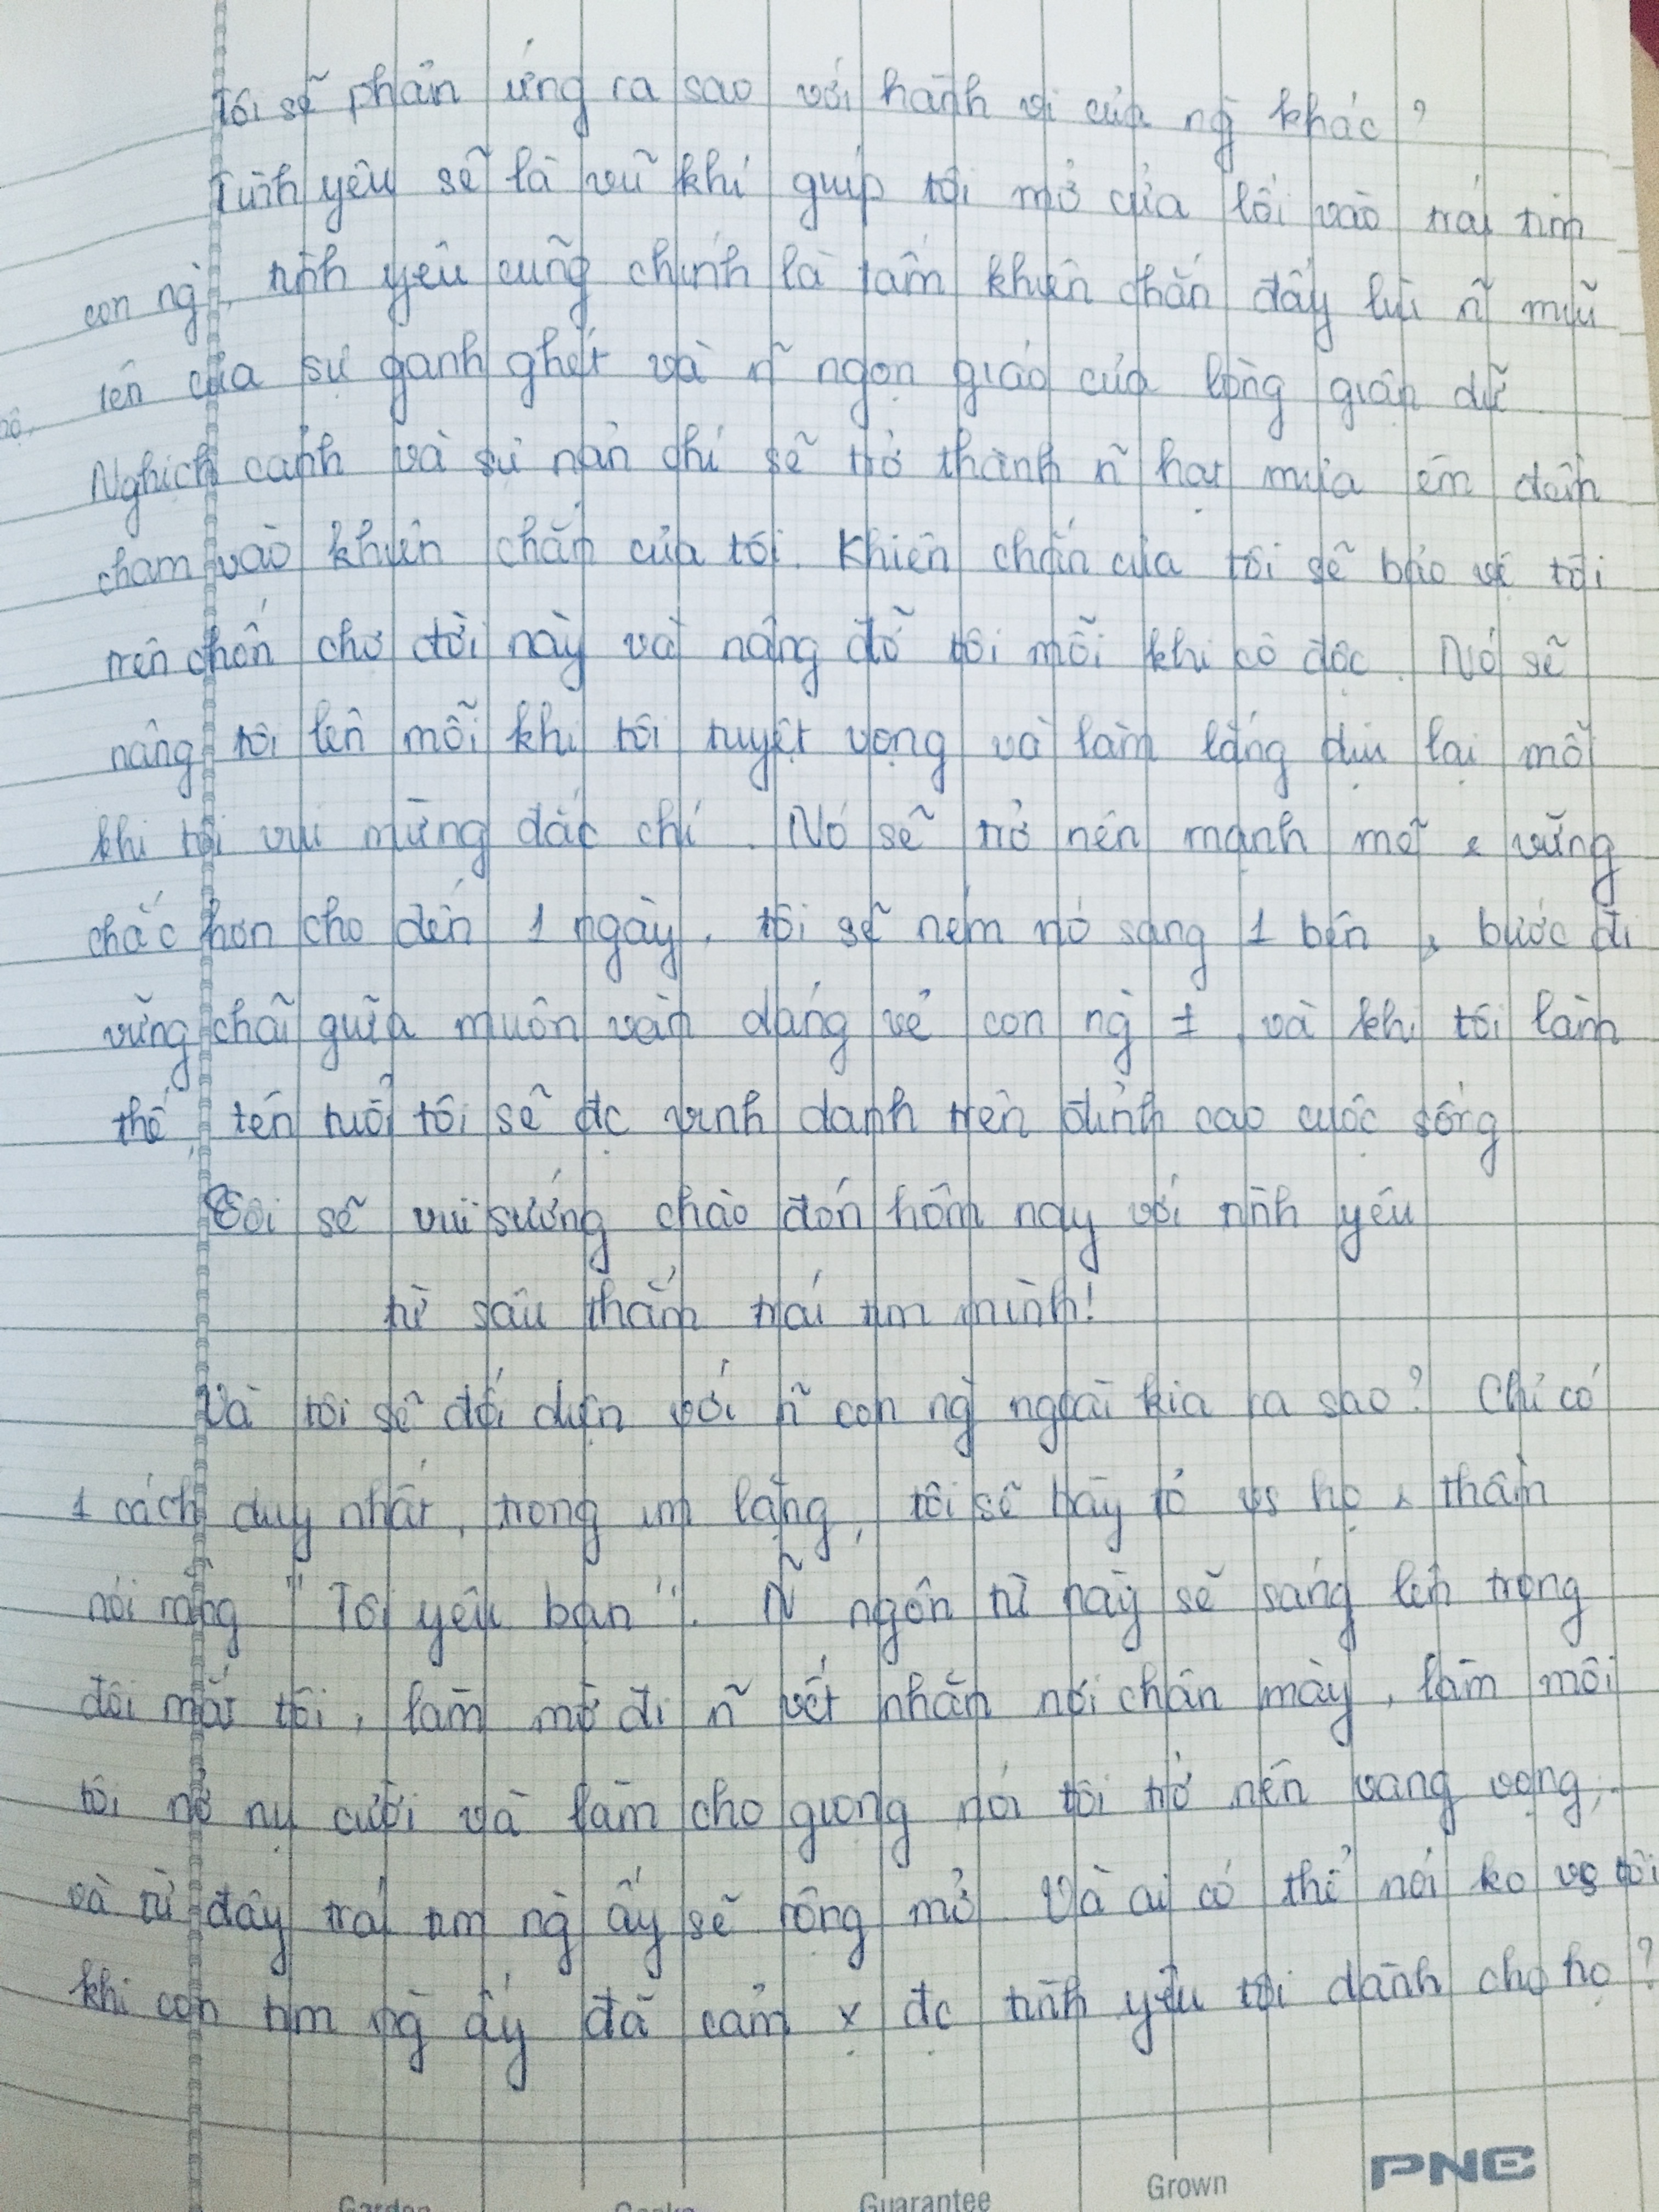 Tôi sẽ phản ứng ra sao với hành vi của ng̀ khác?
Tình yêu sẽ là vũ khí giúp tôi mở cửa lối vào trái tim
con ng̀, tình yêu cũng chính là tấm khiên chắn đẩy lùi ñ mũi
tên của sự ganh ghét và ñ ngọn giáo của lòng giận dữ
Nghịch cảnh và sự nản chí sẽ trở thành ñ hạt mưa êm đềm
chạm vào khiên chắn của tôi. Khiên chắn của tôi sẽ bảo vệ tôi
trên chốn chợ đời này và nâng đỡ tôi mỗi khi cô độc. Nó sẽ
nâng tôi lên mỗi khi tôi tuyệt vọng và làm lắng dịu lại mỗi
khi tôi vui mừng đắc chí. Nó sẽ trở nên mạnh mẽ & vững
chắc hơn cho đến 1 ngày, tôi sẽ ném nó sang 1 bên & bước đi
vững chãi giữa muôn vàn dáng vẻ con ng̀ ±, và khi tôi làm
thế, tên tuổi tôi sẽ đc vinh danh trên đỉnh cao cuộc sống
Tôi sẽ vui sướng chào đón hôm nay với tình yêu
từ sâu thẳm trái tim mình!
Và tôi sẽ đối diện với ñ con ng̀ ngoài kia ra sao? Chỉ có
1 cách duy nhất, trong im lặng, tôi sẽ bày tỏ vs họ & thầm
nói rằng "Tôi yêu bạn". Ñ ngôn từ này sẽ sáng lên trong
đôi mắt tôi, làm mờ đi ñ vết nhăn nơi chân mày, làm môi
tôi nở nụ cười và làm cho giọng nói tôi trở nên vang vọng,
và từ đây trái tim ng̀ ấy sẽ rộng mở. Và ai có thể nói ko vs tôi
khi con tim ng̀ ấy đã cảm x̣ đc tình yêu tôi dành cho họ?
Guarantee
Grown
PNE